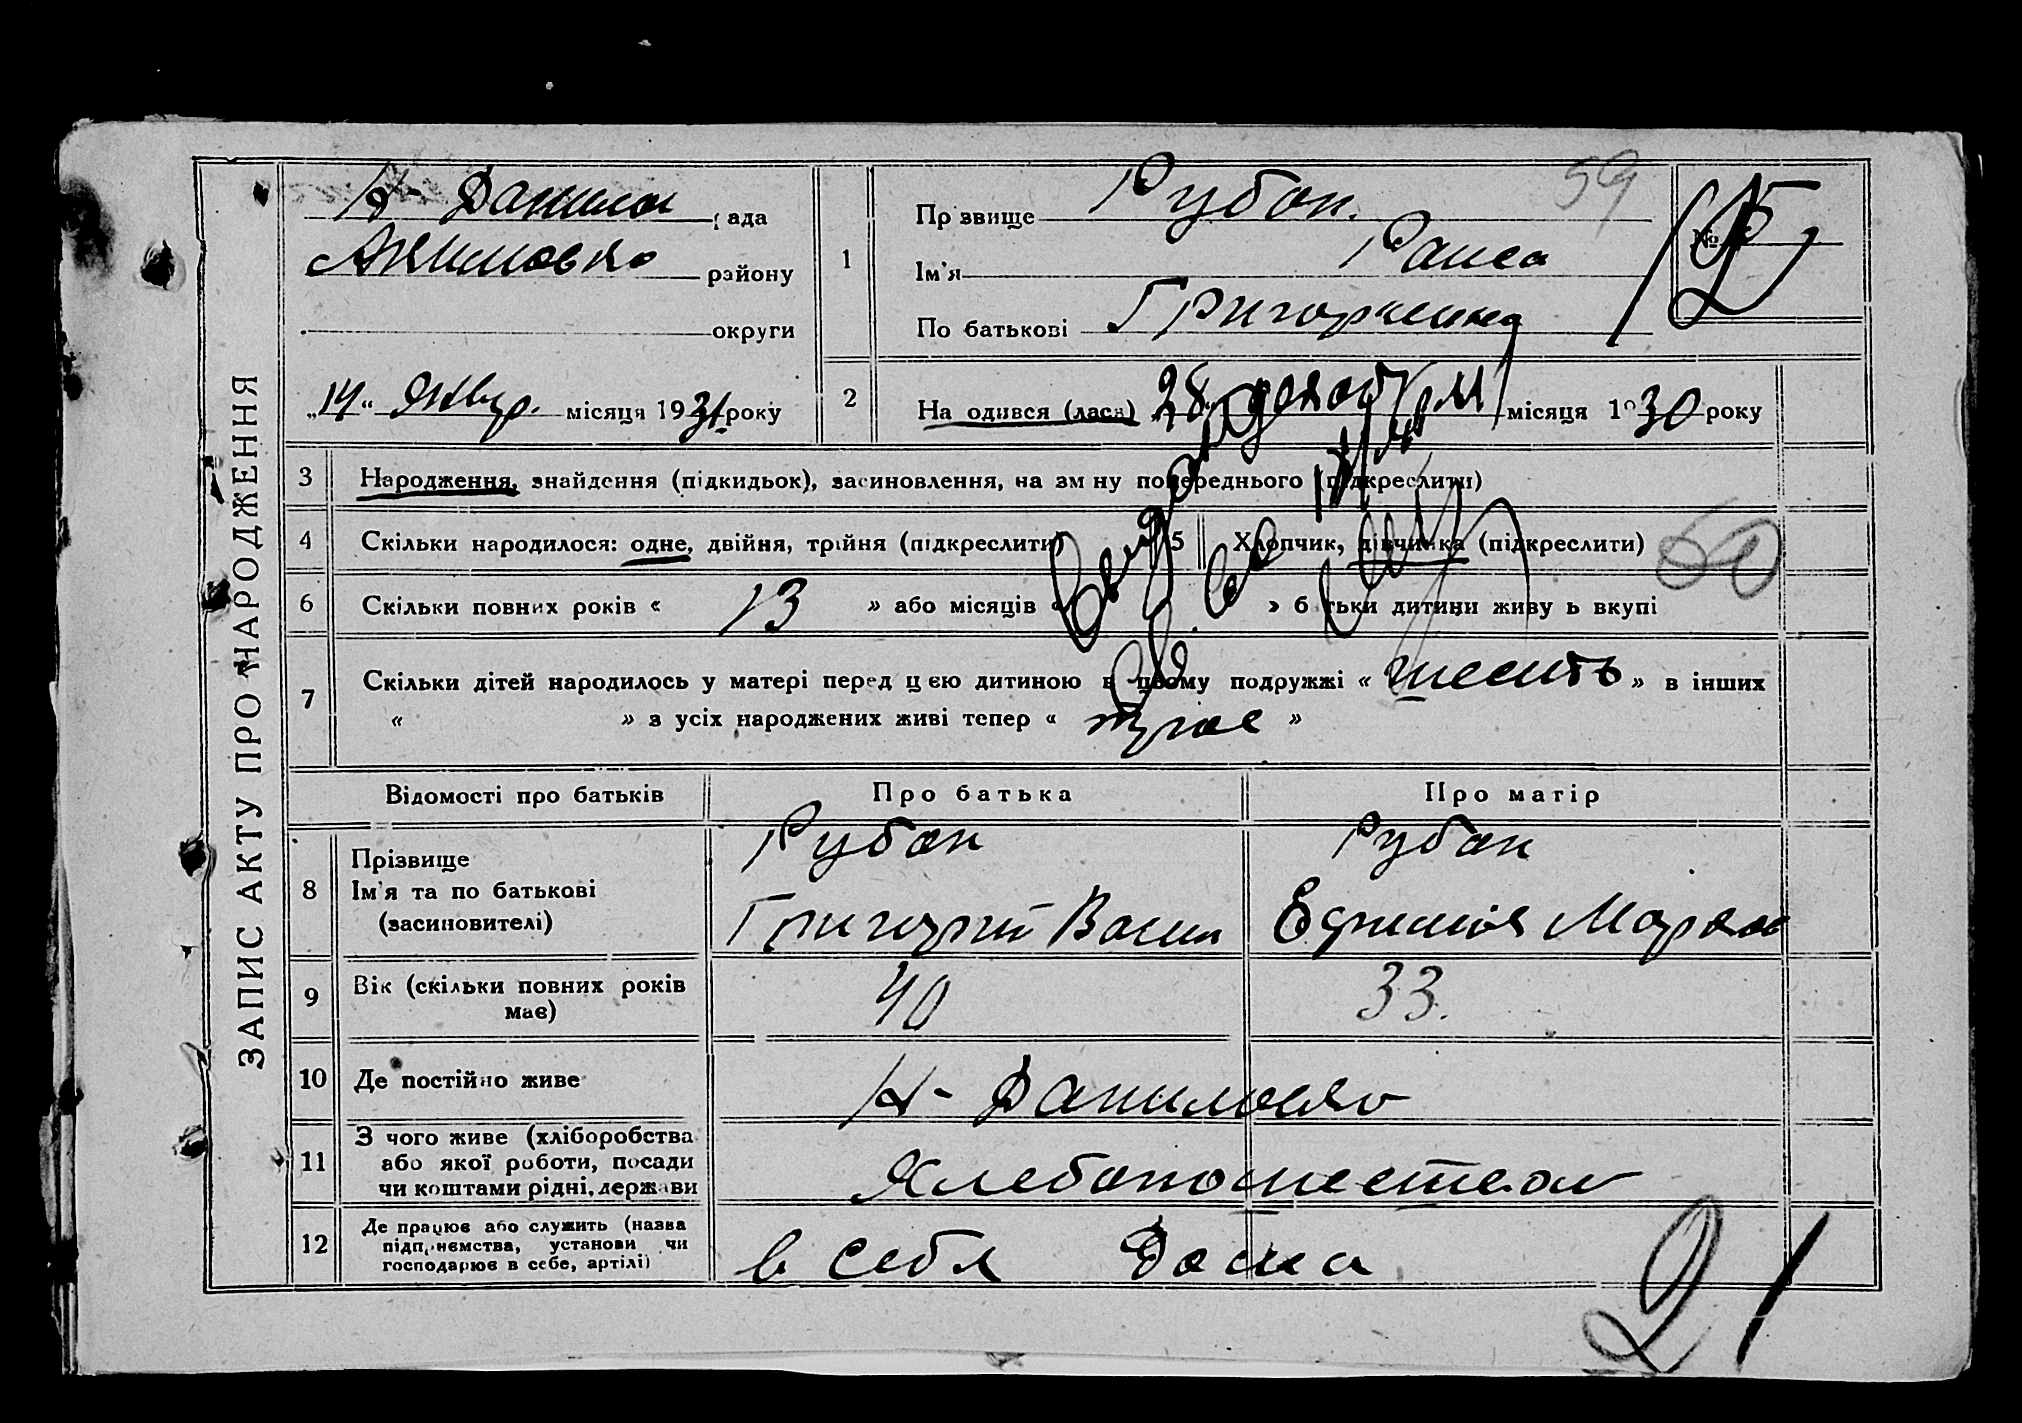 ЗАПИС АКТУ ПРО НАРОДЖЕННЯ
Н- Данилов рада
Акимовка району
округи
„14“ Январ. місяця 1931 року
1
Прзвище Рубан.
59
Ім'я Раиса
По батькові Григорьевна
№ 5
2
На одився (лася) 28 декабря місяця 1930 року
3 Народження, знайдення (підкидьок), засиновлення, на зм ну попереднього (підкреслити)
4 Скільки народилося: одне, двійня, трійня (підкреслити)
5 Хлопчик, дівчинка (підкреслити)
60
6 Скільки повних років « 13 » або місяців « » б тьки дитини живу ь вкупі
7 Скільки дітей народилось у матері перед цією дитиною в цьому подружжі « шесть » в інших
« » з усіх народжених живі тепер « трое »
Відомості про батьків
Про батька
Про матір
8 Прізвище
Ім'я та по батькові
(засиновителі)
Рубан
Григорий Васил
Рубан
Ефимия Марков
9 Вік (скільки повних років має)
40
33.
10 Де постійно живе
Н- Даниловка
11 З чого живе (хліборобства
або якої роботи, посади
чи коштами рідні, держави
Хлебопашеством
12 Де працює або служить (назва
підприємства, установи чи
господарює в себе, артілі)
в себя Дома
21